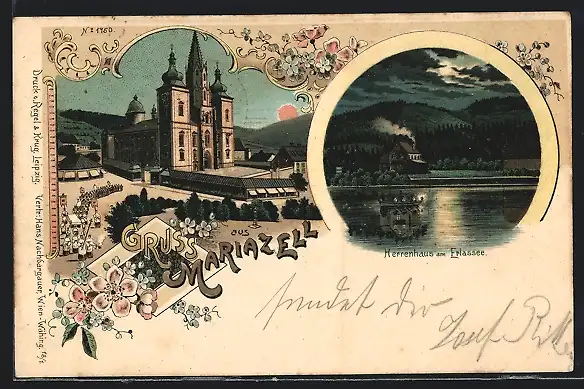 No 1760.
Druck v. Regel & Krug, Leipzig.
Verlv. Hans Nachbargauer, Wien-Währing.
GRUSS
aus
MARIAZELL
Herrenhaus am Erlafsee.
sendet dir
Josef